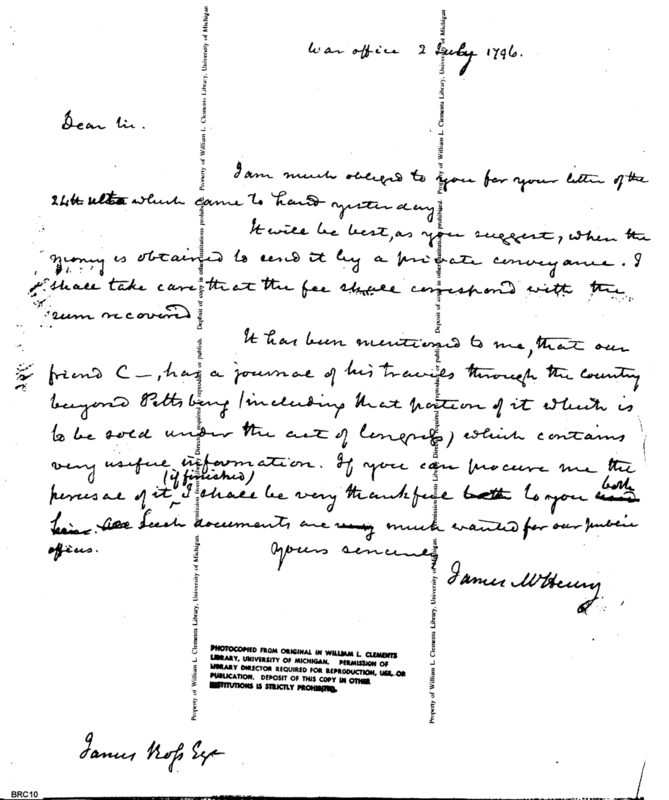 War office 2 July 1796.
Dear Sir.
I am much obliged to you for your letter of the
24th ulto which came to hand yesterday
It will be best, as you suggest, when the
money is obtained to send it by a private conveyance. I
shall take care that the fee shall correspond with the
sum recovered
It has been mentioned to me, that our
friend C—, has a journal of his travels through the country
beyond Pittsburg (including that portion of it which is
to be sold under the act of Congress) which contains
very useful information. If you can procure me the
perusal of it (if finished) I shall be very thankful both to you both
his. Such documents are very much wanted for our public
offices.
Yours sincerely
James McHenry
PHOTOCOPIED FROM ORIGINAL IN WILLIAM L. CLEMENTS
LIBRARY, UNIVERSITY OF MICHIGAN. PERMISSION OF
LIBRARY DIRECTOR REQUIRED FOR REPRODUCTION, USE, OR
PUBLICATION. DEPOSIT OF THIS COPY IN OTHER
INSTITUTIONS IS STRICTLY PROHIBITED.
James Ross Esqr
BRC10
Property of William L. Clements Library, University of Michigan.
Deposit of copy in other institutions prohibited.
Property of William L. Clements Library, University of Michigan.
Deposit of copy in other institutions prohibited.